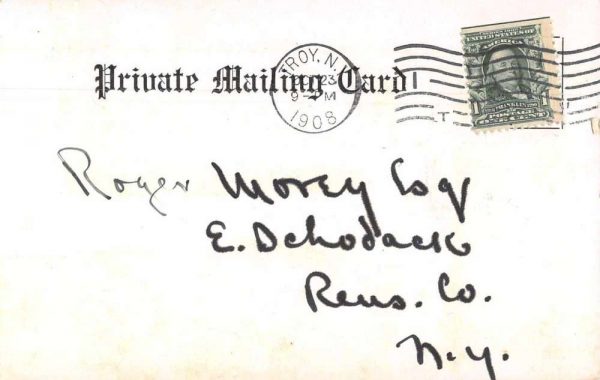 TROY, N.Y.
23
9- PM
1908
Private Mailing Card
UNITED STATES OF AMERICA
FRANKLIN
POSTAGE
ONE CENT
Roger Morey Esq
E. Schodack
Rens. Co.
N.Y.